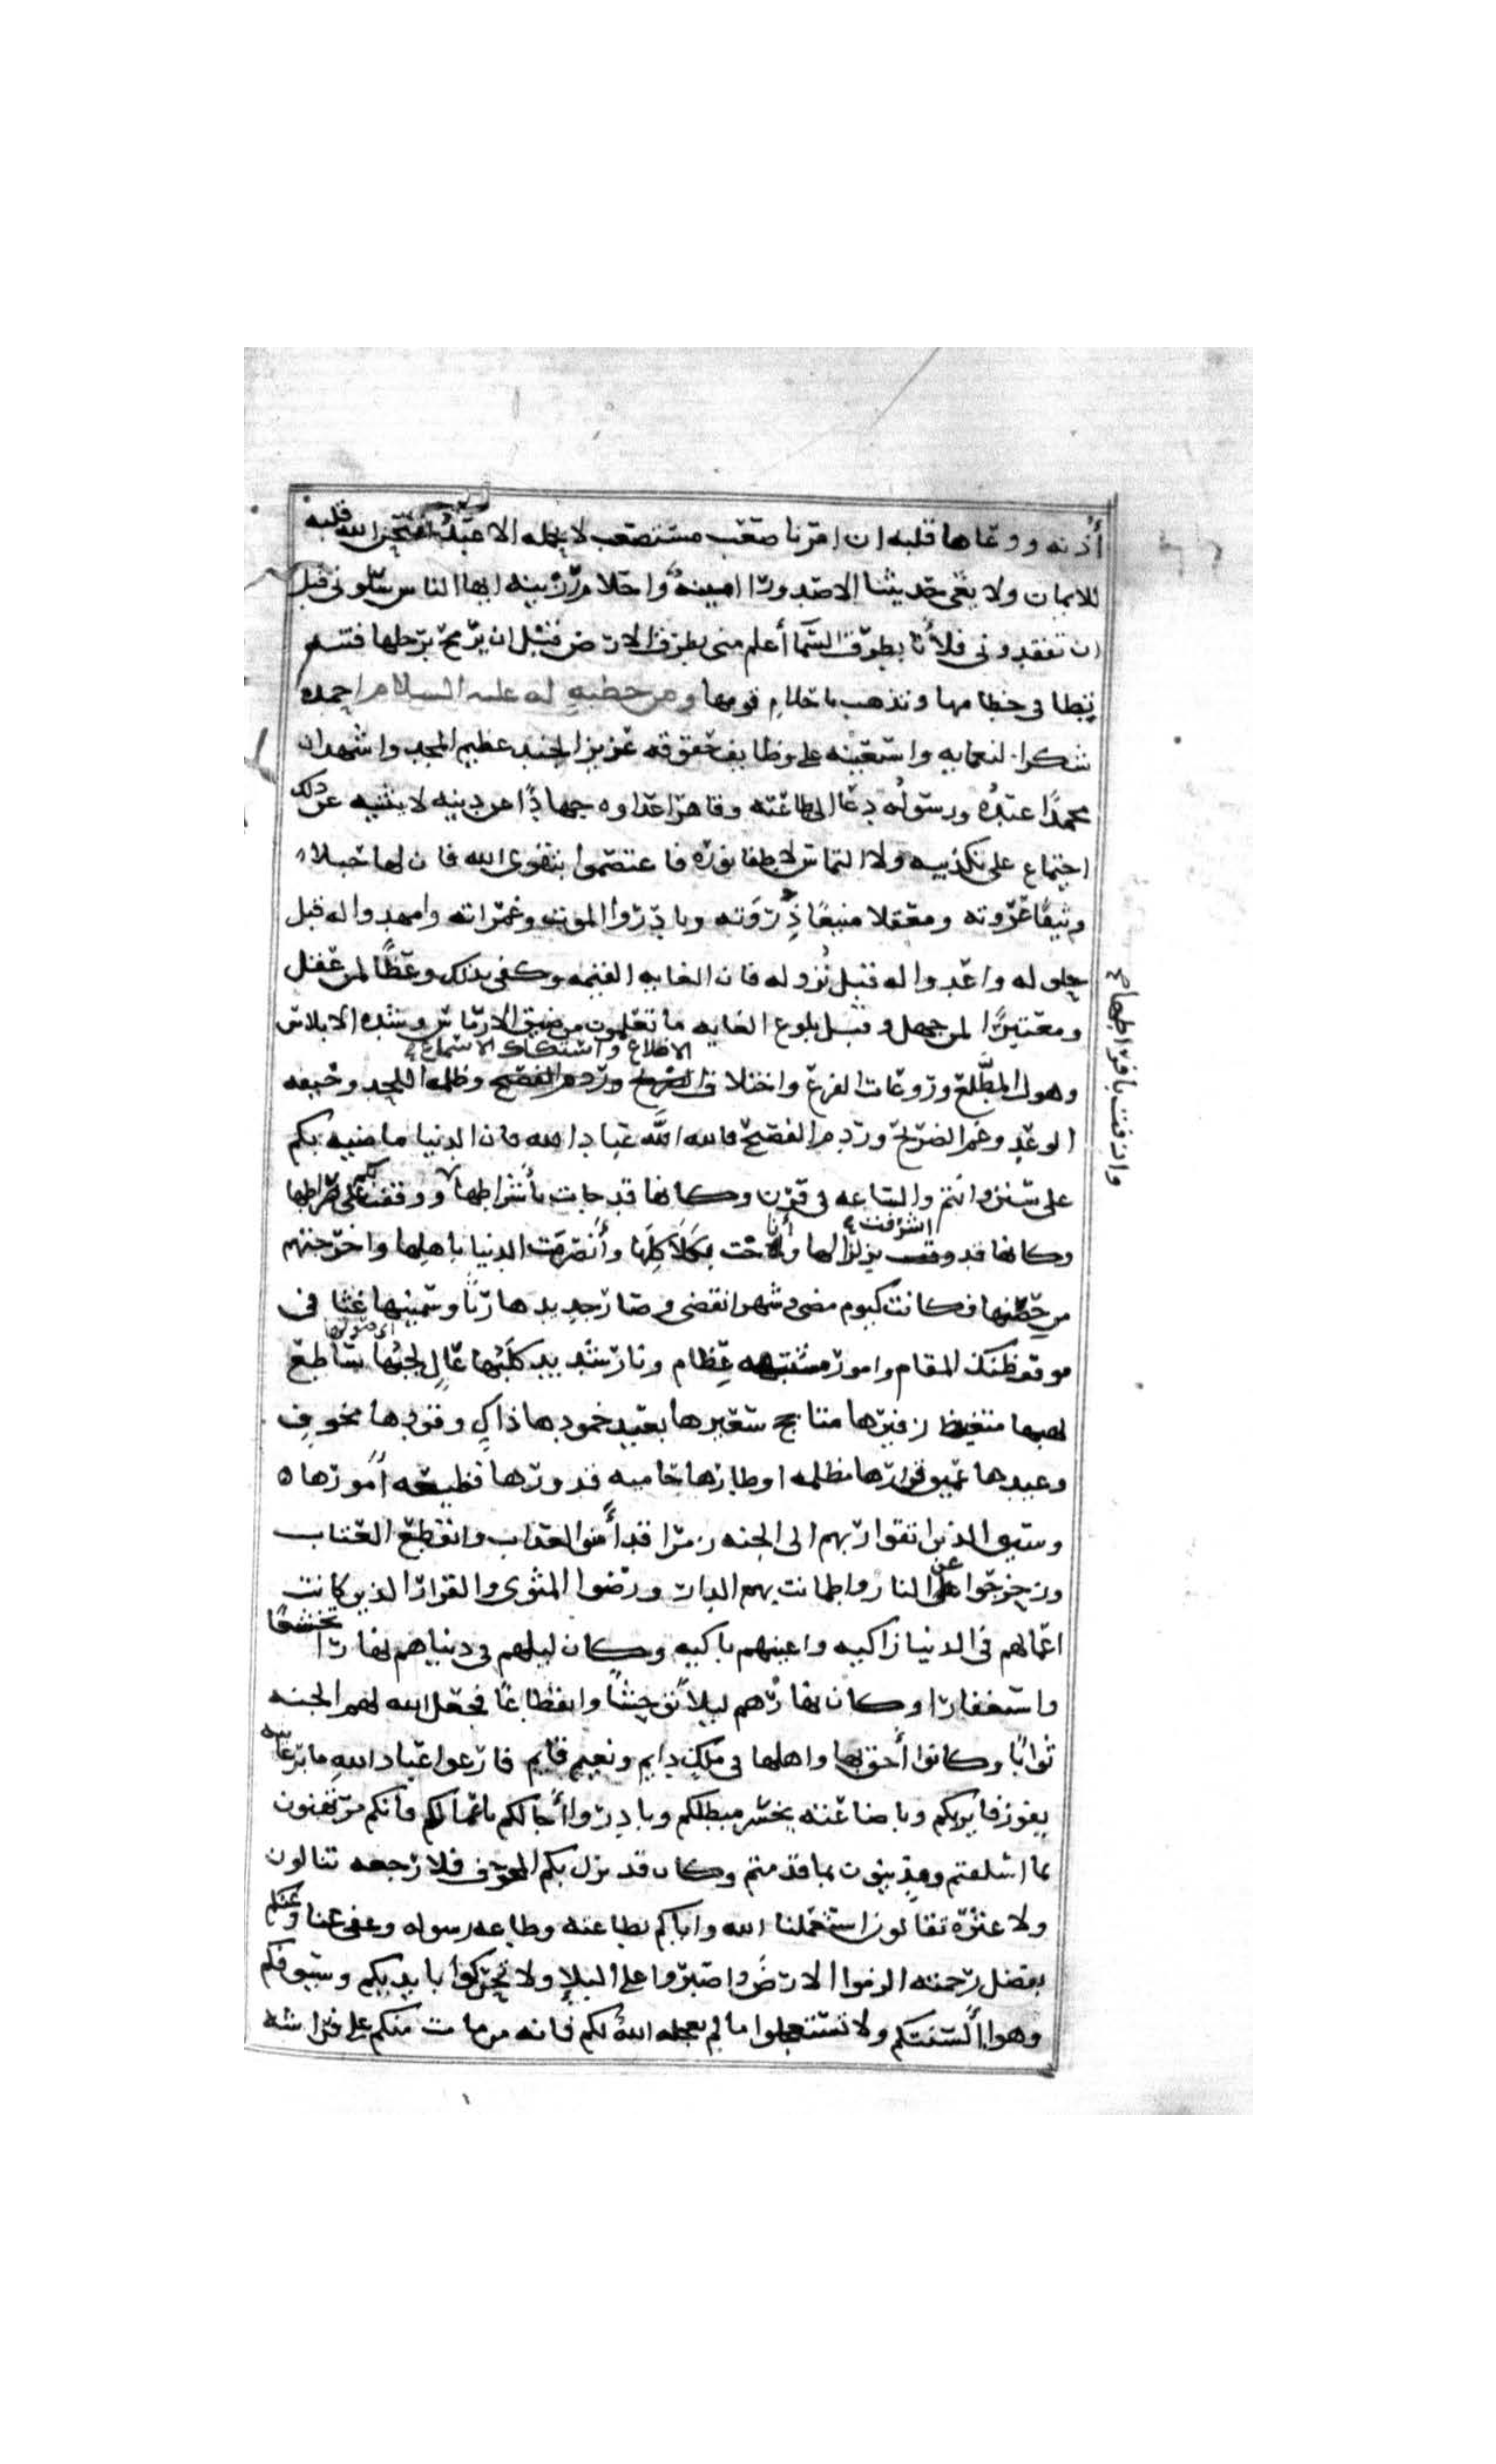 أذنه ووعاها قلبه ان امرنا صعب مستصعب لا يحمله الا عبد امتحن الله قلبه
للايمان ولا يعى حديثنا الا صدور امينة واحلام رزينه ايها الناس سلونى قبل
ان تفقدونى فلأنا بطرق السما أعلم منى بطرق الارض قبل ان
تطا فى خطامها وتذهب باحلام قومها ومن خطبه له عليه السلام احمده
شكرا لنعامه واستعينه على وظايف حقوقه عزيز الجند عظيم المجد واشهد ان
محمدًا عبدُه ورسولُه دعا الى طاعته وقاهر اعداه جهادًا عن دينه لا يثنيه عن ذلك
اجتماع على تكذيبه ولا التماس لاطفا نوره فاعتصموا بتقوى الله فان لها حبلا
وثيقًا عروته ومعقلا منيعًا ذِروَته وبادروا الموت وغمراته وامهدوا له قبل
حلوله واعدوا له قبل نُزوله فان الغايه القيمه وكفى بذلك وعظًا لمن عقل
ومعتبرًا لمن جهل وقبل بلوغ الغايه ما تعلمون من ضيق الارماس وشده الابلاس
الاضلاع واستكاك الاسماع
وهول المطَّلع وروعات الفزع واختلاف وظلمه اللحد وخيفه
الوعد وغم الضريح وردم الصفيح فالله اللَّه عباد الله فان الدنيا ماضيه بكم
على سنن وانتم والساعه فى قرن وكانها قد جات بأشراطها ووقفت بكم على صراطها
وازفت بافراطها
اشرفت
وكانها قد بزلازلها وأناخت بكَلاكِلِها وأنصرمت الدنيا باهلها واخرجتهم
من حضنها فكانت كيوم مضى وشهر انقضى وصار جديدها رثًّا وسمينها غثا فى
موقف ضنك المقام وامور مشتبهه عِظام ونار شديد كَلَبُها عالٍ لجبُها ساطع
اى صوتها
لهبها متغيظ زفيرها متاجج سعيرها بعيد خمودها ذاكٍ وقودها مخوف
وعيدها عميق قرارها مظلمه اقطارها حاميه قدورها فظيعه أمورها ه
وسيق الذين اتقوا ربهم الى الجنه زمرا قد أمن العذاب وانقطع العتاب
وزحزحوا عن النار واطمانت بهم الدار ورضوا المثوى والقرار الذين كانت
اعمالهم فى الدنيا زاكيه واعينهم باكيه وكان ليلهم فى دنياهم نهارًا تخشعًا
واستغفارًا وكان نهارهم ليلا توحشًا وانقطاعًا فجعل الله لهم الجنه
ثوابًا وكانوا أحق بها واهلها فى ملكٍ دايم ونعيم قايم فارعوا عباد اللهِ ما برعايته
يفوز فايزكم وباضاعته يخسر مبطلكم وبادروا أجالكم باعمالكم فانكم مرتهنون
بما اسلفتم ومدينون بما قدمتم وكان قد نزل بكم المخوف فلا رجعه تنالون
ولا عثرة تقالون استعملنا الله واياكم بطاعته وطاعه رسوله وعفى عنا وعنكم
بفضل رحمته الزموا الارضَ واصبروا على البلاء ولا تحركوا بايديكم وسيوفكم
وهوا ألسنتكم ولا تستعجلوا ما لم يعجله اللهُ لكم فانه من مات منكم على فراشه